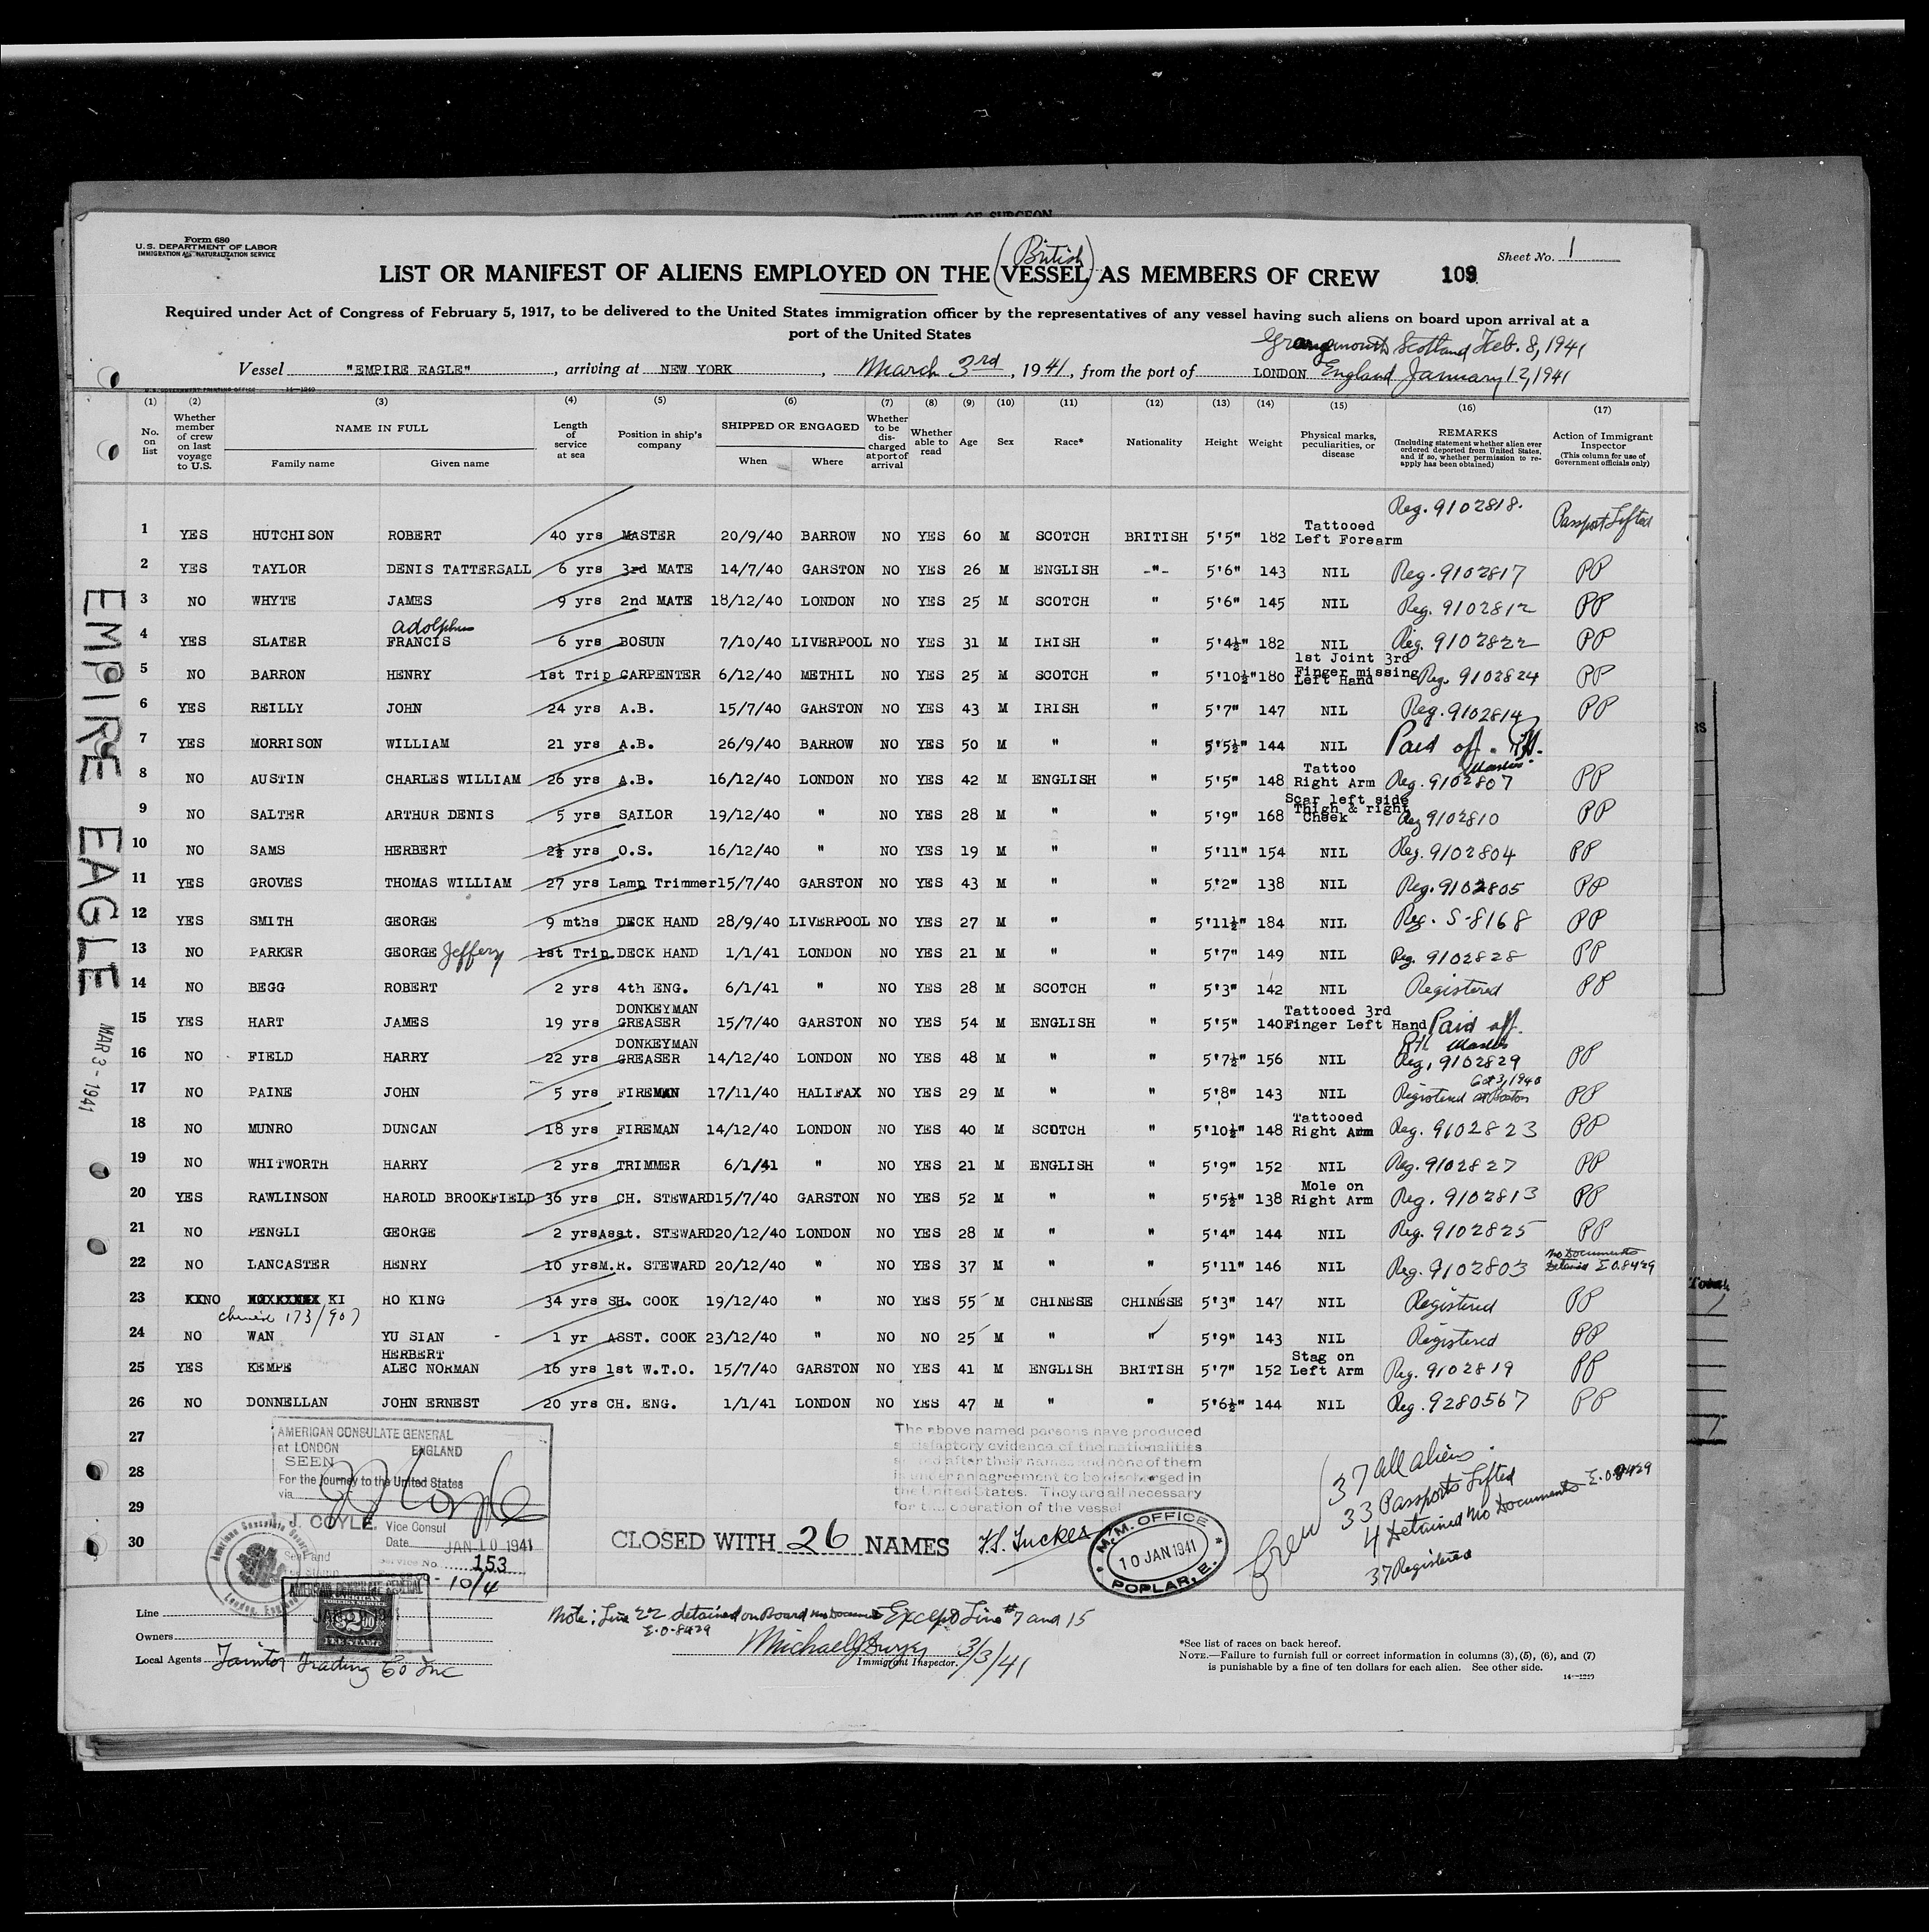 AFFIDAVIT OF SURGEON
Form 680
U. S. DEPARTMENT OF LABOR
IMMIGRATION AND NATURALIZATION SERVICE
Sheet No. 1
(British)
LIST OR MANIFEST OF ALIENS EMPLOYED ON THE VESSEL AS MEMBERS OF CREW 109
Required under Act of Congress of February 5, 1917, to be delivered to the United States immigration officer by the representatives of any vessel having such aliens on board upon arrival at a
port of the United States
Grangemouth Scotland Feb. 8, 1941
Vessel "EMPIRE EAGLE", arriving at NEW YORK, March 3rd, 1941, from the port of LONDON England January 12, 1941
U. S. GOVERNMENT PRINTING OFFICE 14—1240
(1) No. on list
(2) Whether member of crew on last voyage to U.S.
(3) NAME IN FULL Family name Given name
(4) Length of service at sea
(5) Position in ship's company
(6) SHIPPED OR ENGAGED When Where
(7) Whether to be discharged at port of arrival
(8) Whether able to read
(9) Age
(10) Sex
(11) Race*
(12) Nationality
(13) Height
(14) Weight
(15) Physical marks, peculiarities, or disease
(16) REMARKS (Including statement whether alien ever ordered deported from United States, and if so, whether permission to reapply has been obtained)
(17) Action of Immigrant Inspector (This column for use of Government officials only)
1 YES HUTCHISON ROBERT 40 yrs MASTER 20/9/40 BARROW NO YES 60 M SCOTCH BRITISH 5'5" 182 Tattooed Left Forearm Reg. 9102818. Passport Lifted
2 YES TAYLOR DENIS TATTERSALL 6 yrs 3rd MATE 14/7/40 GARSTON NO YES 26 M ENGLISH -"- 5'6" 143 NIL Reg. 9102817 PP
3 NO WHYTE JAMES 9 yrs 2nd MATE 18/12/40 LONDON NO YES 25 M SCOTCH " 5'6" 145 NIL Reg. 9102812 PP
4 YES SLATER Adolphus FRANCIS 6 yrs BOSUN 7/10/40 LIVERPOOL NO YES 31 M IRISH " 5'4½" 182 NIL Reg. 9102822 PP
5 NO BARRON HENRY 1st Trip CARPENTER 6/12/40 METHIL NO YES 25 M SCOTCH " 5'10½" 180 1st Joint 3rd Finger missing Left Hand Reg. 9102824 PP
6 YES REILLY JOHN 24 yrs A.B. 15/7/40 GARSTON NO YES 43 M IRISH " 5'7" 147 NIL Reg. 9102814 PP
7 YES MORRISON WILLIAM 21 yrs A.B. 26/9/40 BARROW NO YES 50 M " " 5'5½" 144 NIL Paid off. RH. Master.
8 NO AUSTIN CHARLES WILLIAM 26 yrs A.B. 16/12/40 LONDON NO YES 42 M ENGLISH " 5'5" 148 Tattoo Right Arm Reg. 9102807 PP
9 NO SALTER ARTHUR DENIS 5 yrs SAILOR 19/12/40 " NO YES 28 M " " 5'9" 168 Scar left side Thigh & right Cheek Reg 9102810 PP
10 NO SAMS HERBERT 2½ yrs O.S. 16/12/40 " NO YES 19 M " " 5'11" 154 NIL Reg. 9102804 PP
11 YES GROVES THOMAS WILLIAM 27 yrs Lamp Trimmer 15/7/40 GARSTON NO YES 43 M " " 5'2" 138 NIL Reg. 9102805 PP
12 YES SMITH GEORGE 9 mths DECK HAND 28/9/40 LIVERPOOL NO YES 27 M " " 5'11½" 184 NIL Reg. S-8168 PP
13 NO PARKER GEORGE Jeffery 1st Trip. DECK HAND 1/1/41 LONDON NO YES 21 M " " 5'7" 149 NIL Reg. 9102828 PP
14 NO BEGG ROBERT 2 yrs 4th ENG. 6/1/41 " NO YES 28 M SCOTCH " 5'3" 142 NIL Registered PP
15 YES HART JAMES 19 yrs DONKEYMAN GREASER 15/7/40 GARSTON NO YES 54 M ENGLISH " 5'5" 140 Tattooed 3rd Finger Left Hand Paid off. RH Master
16 NO FIELD HARRY 22 yrs DONKEYMAN GREASER 14/12/40 LONDON NO YES 48 M " " 5'7½" 156 NIL Reg. 9102829 PP
17 NO PAINE JOHN 5 yrs FIREMAN 17/11/40 HALIFAX NO YES 29 M " " 5'8" 143 NIL Registered Oct 3, 1940 at Boston PP
18 NO MUNRO DUNCAN 18 yrs FIREMAN 14/12/40 LONDON NO YES 40 M SCOTCH " 5'10½" 148 Tattooed Right Arm Reg. 9102823 PP
19 NO WHITWORTH HARRY 2 yrs TRIMMER 6/1/41 " NO YES 21 M ENGLISH " 5'9" 152 NIL Reg. 9102827 PP
20 YES RAWLINSON HAROLD BROOKFIELD 36 yrs CH. STEWARD 15/7/40 GARSTON NO YES 52 M " " 5'5½" 138 Mole on Right Arm Reg. 9102813 PP
21 NO PENGLI GEORGE 2 yrs Asst. STEWARD 20/12/40 LONDON NO YES 28 M " " 5'4" 144 NIL Reg. 9102825 PP
22 NO LANCASTER HENRY 10 yrs M.R. STEWARD 20/12/40 " NO YES 37 M " " 5'11" 146 NIL Reg. 9102803 No Documents Detained E.O.8429
23 NO KI HO KING 34 yrs SH. COOK 19/12/40 " NO YES 55 M CHINESE CHINESE 5'3" 147 NIL Registered PP
173/907
24 NO WAN YU SIAN 1 yr ASST. COOK 23/12/40 " NO NO 25 M " " 5'9" 143 NIL Registered PP
25 YES KEMPE HERBERT ALEC NORMAN 16 yrs 1st W.T.O. 15/7/40 GARSTON NO YES 41 M ENGLISH BRITISH 5'7" 152 Stag on Left Arm Reg. 9102819 PP
26 NO DONNELLAN JOHN ERNEST 20 yrs CH. ENG. 1/1/41 LONDON NO YES 47 M " " 5'6½" 144 NIL Reg. 9280567 PP
27
28
29
30
EMPIRE EAGLE
MAR 3 - 1941
AMERICAN CONSULATE GENERAL
at LONDON ENGLAND
SEEN
For the journey to the United States
via
J. J. COYLE. Vice Consul
Date JAN 10 1941
Service No. 153
10/4
American Consulate General
London, England
AMERICAN CONSULATE GENERAL
AMERICAN
FOREIGN SERVICE
$2.00
FEE STAMP
The above named persons have produced
satisfactory evidence of the nationalities
stated after their names and none of them
is under an agreement to be discharged in
the United States. They are all necessary
for the operation of the vessel
CLOSED WITH 26 NAMES F.S. Tucker
M.M. OFFICE
10 JAN 1941
POPLAR, E.
Crew
37 all aliens.
33 Passports Lifted
4 Detained No Documents E.O.8429
37 Registered
Line
Owners
Local Agents Taintor Trading Co Inc
Note: Line 22 detained on Board No Documents Except Line #7 and 15
E.O-8429
3/3/41
Immigrant Inspector.
*See list of races on back hereof.
NOTE.—Failure to furnish full or correct information in columns (3), (5), (6), and (7)
is punishable by a fine of ten dollars for each alien. See other side.
14—1240
Total